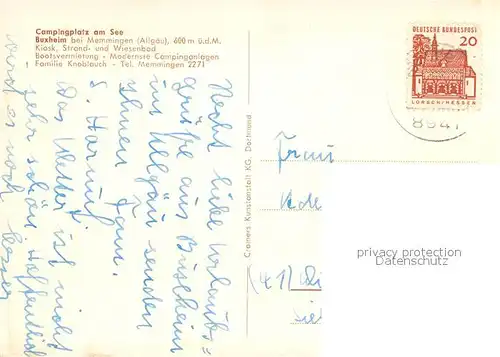 Campingplatz am See
Buxheim bei Memmingen (Allgäu), 600 m ü.d.M.
Kiosk, Strand- und Wiesenbad
Bootsvermietung - Modernste Campinganlagen
Familie Knoblauch - Tel. Memmingen 2271
Recht liebe Urlaubs=
grüße aus Buxheim
im Allgäu senden
Ihnen Fam.
S.
Das Wetter ist nicht
sehr schön hoffentlich
wird es noch besser
Cramers Kunstanstalt KG, Dortmund
DEUTSCHE BUNDESPOST
20
LORSCH/HESSEN
8941
Frau
(41)
privacy protection
Datenschutz